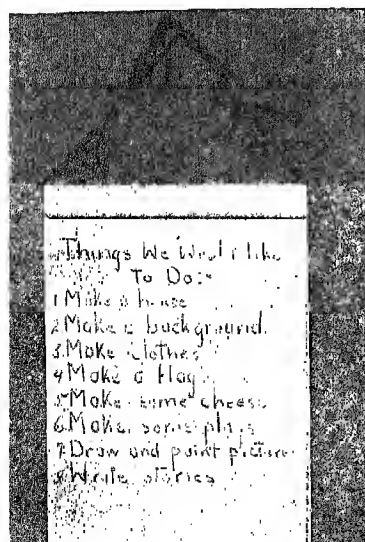 Things We Would like
To Do:-
1 Make a house
2 Make a background.
3. Make clothes
4 Make a flag
5 Make some cheese
6. Make some
7. Draw and paint pictures
8. Write stories